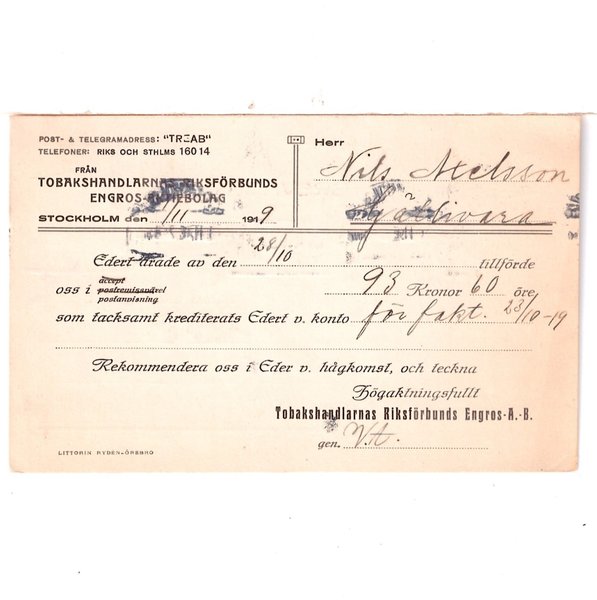 POST- & TELEGRAMADRESS: "TREAB"
TELEFONER: RIKS OCH STHLMS 16014
FRÅN
TOBAKSHANDLARNAS RIKSFÖRBUNDS
ENGROS-AKTIEBOLAG
STOCKHOLM den 1/11 1919
Herr
Nils Axelsson
Gällivara
Edert ärade av den 28/10 tillförde
oss i accept postremissväxel postanvisning 93 Kronor 60 öre,
som tacksamt krediterats Edert v. konto för fakt. 23/10-19
Rekommendera oss i Eder v. hågkomst, och teckna
Högaktningsfullt
Tobakshandlarnas Riksförbunds Engros-A.-B.
gen. V.A.
LITTORIN RYDÉN-ÖREBRO